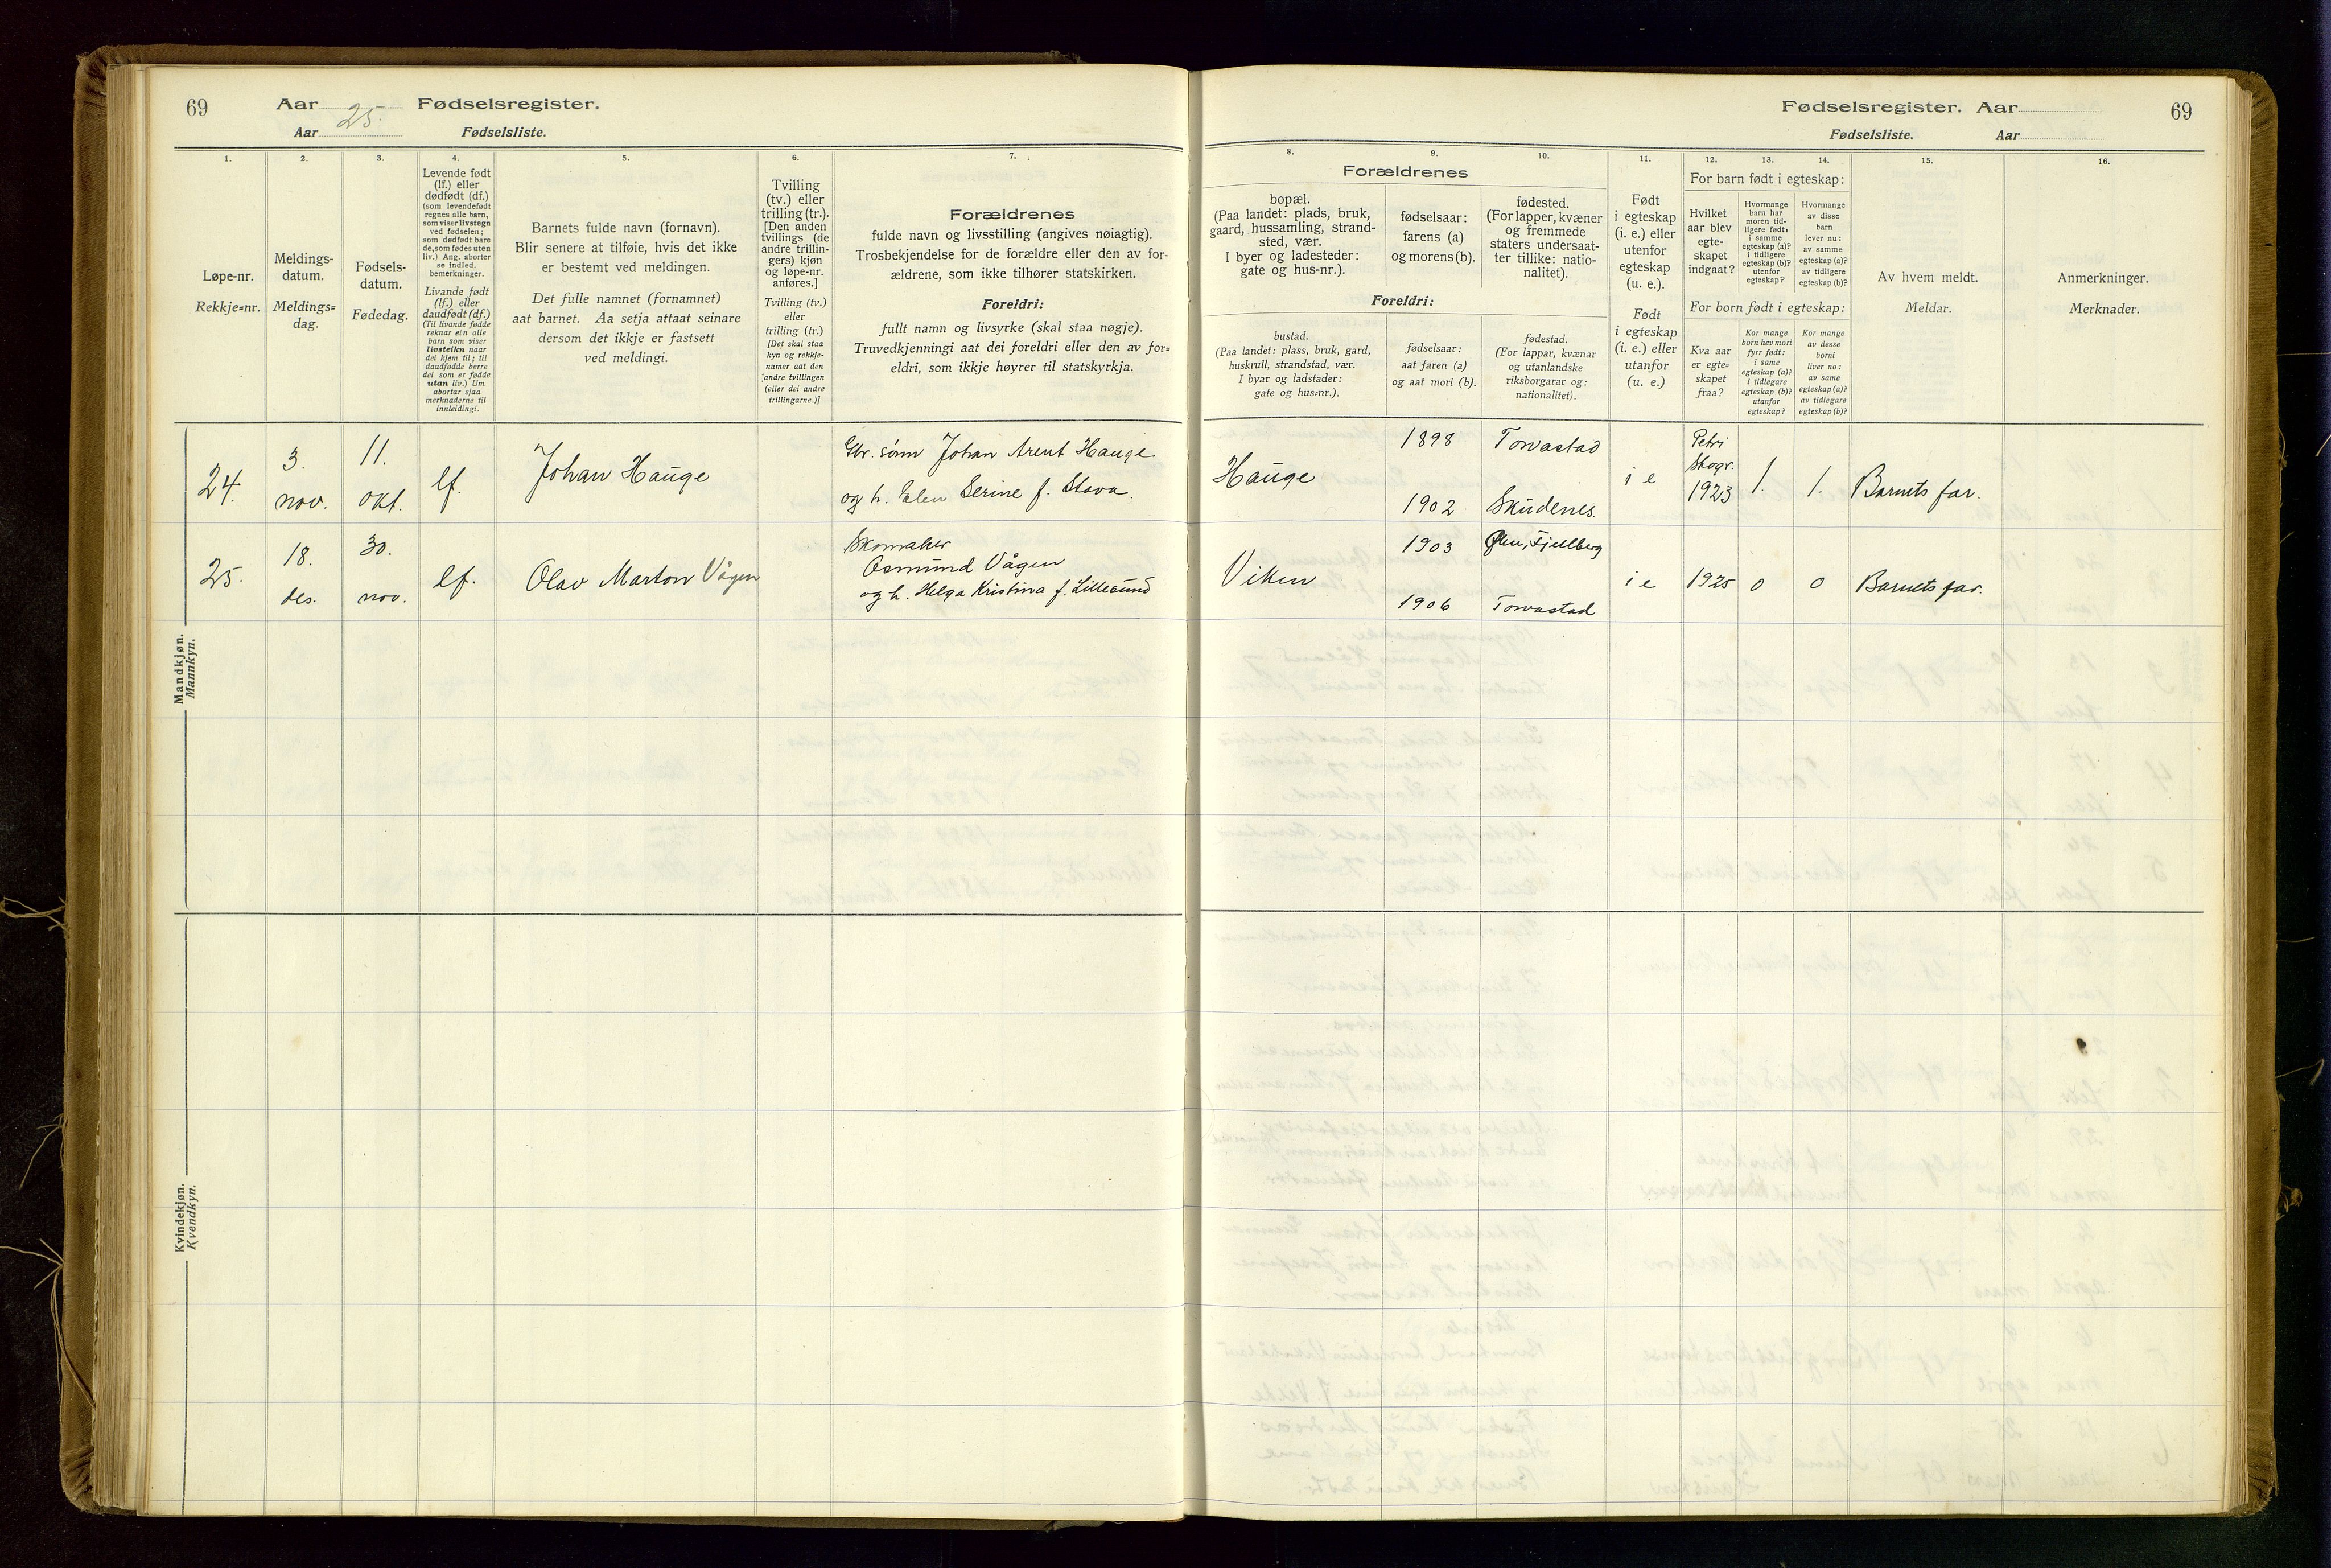 69
Aar 25. Fødselsregister.
Aar Fødselsliste.
1.
2.
3.
4.
5.
6.
7.
Løpe-nr.
Rekkje=nr.
Meldings-
datum.
Meldings=
dag.
Fødsels-
datum.
Fødedag.
Levende født
(lf.) eller
dødfødt (df.)
(som levendefødt
regnes alle barn,
som viser livstegn
ved fødselen;
som dødfødt bare
de, som fødes uten
liv.) Ang. aborter
se indled.
bemerkninger.
Livande født
(lf.) eller
daudfødt (df.)
(Til livande fødde
reknar ein alle
barn som viser
livsteikn naar
dei kjem til; til
daudfødde berre
dei som er fødde
utan liv.) Um
abortar sjaa
merknaderne til
innleidingi.
Barnets fulde navn (fornavn).
Blir senere at tilføie, hvis det ikke
er bestemt ved meldingen.
Det fulle namnet (fornamnet)
aat barnet. Aa setja attaat seinare
dersom det ikkje er fastsett
ved meldingi.
Tvilling
(tv.) eller
trilling (tr.).
[Den anden
tvillings (de
andre trillin-
gers) kjøn
og løpe-nr.
anføres.]
Tvilling (tv.)
eller
trilling (tr.)
[Det skal staa
kyn og rekkje-
numer aat den
andre tvillingen
(eller dei andre
trillingarne.)]
Forældrenes
fulde navn og livsstilling (angives nøiagtig).
Trosbekjendelse for de forældre eller den av for-
ældrene, som ikke tilhører statskirken.
Foreldri:
fullt namn og livsyrke (skal staa nøgje).
Truvedkjenningi aat dei foreldri eller den av for=
eldri, som ikkje høyrer til statskyrkja.
Mandkjøn.
Mannkyn.
24.
3.
nov.
11.
okt.
lf.
Johan Hauge
Gbr. sønn Johan Arent Hauge
og h. Elen Serine f. Stava.
25.
18.
des.
30.
nov.
lf.
Olav Marton Vågen
Skomaker
Osmund Vågen
og h. Helga Kristina f. Lillesund
Kvindekjøn.
Kvendkyn.
Fødselsregister. Aar
69
Fødselsliste. Aar
8.
9.
10.
11.
12.
13.
14.
15.
16.
Forældrenes
bopæl.
(Paa landet: plads, bruk,
gaard, hussamling, strand-
sted, vær.
I byer og ladesteder:
gate og hus-nr.).
fødselsaar:
farens (a)
og morens (b).
fødested.
(For lapper, kvæner
og fremmede
staters undersaat-
ter tillike: natio-
nalitet).
Foreldri:
bustad.
(Paa landet: plass, bruk, gard,
huskrull, strandstad, vær.
I byar og ladstader:
gate og hus=nr.).
fødselsaar:
aat faren (a)
og aat mori (b).
fødestad.
(For lappar, kvænar
og utanlandske
riksborgarar og:
nationalitet).
Født
i egteskap
(i. e.) eller
utenfor
egteskap
(u. e.).
Født
i egteskap
(i. e.) eller
utanfor
(u. e.)
For barn født i egteskap:
Hvilket
aar blev
egte-
skapet
indgaat?
Hvormange
barn har
moren tid-
ligere født:
i samme
egteskap (a)?
i tidligere
egteskap (b)?
utenfor
egteskap?
Hvormange
av disse
barn
lever nu:
av samme
egteskap (a)?
av tidligere
egteskap (b)?
For born født i egteskap:
Kva aar
er egte=
skapet
fraa?
Kor mange
born hev mori
fyrr født:
i same
egteskap (a)?
i tidlegare
egteskap (b)?
utanfor
egteskap?
Kor mange
av desse
borni
liver no:
av same
egteskap (a)?
av tidlegare
egteskap (b)?
Av hvem meldt.
Meldar.
Anmerkninger.
Merknader.
Hauge
1898
1902
Torvastad
Skudenes.
i e
Petri
Skogr.
1923
1.
1.
Barnets far.
Viken
1903
1906
Ølen, Fjellberg
Torvastad
i e
1925
0
0
Barnets far.